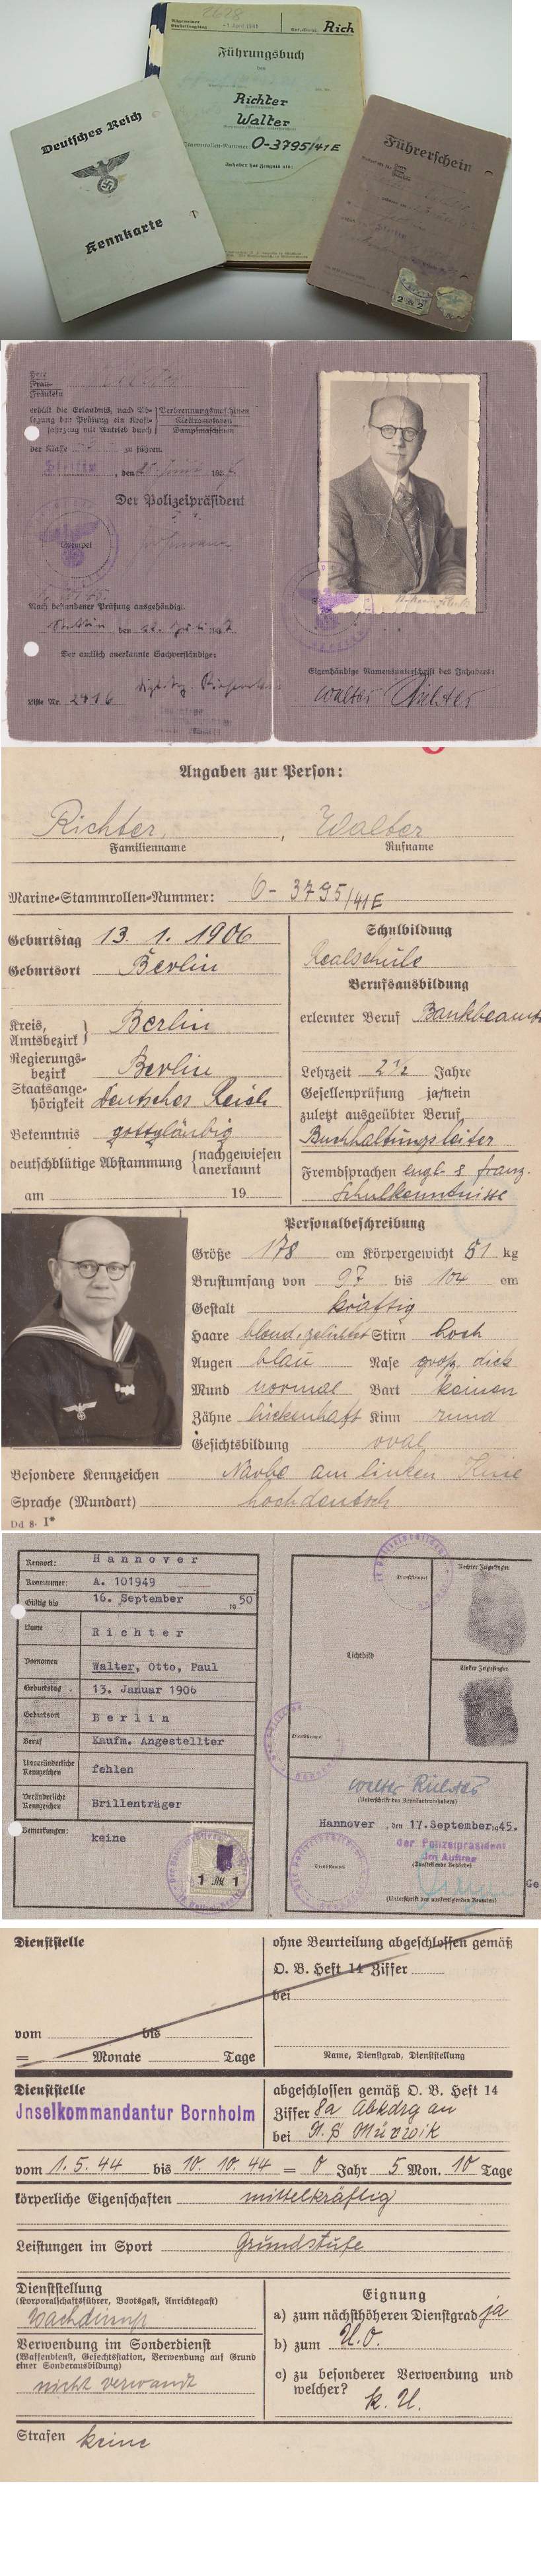 Rich
Führungsbuch
Richter
Walter
O-3795/41E
Deutsches Reich
Kennkarte
Führerschein
Herr
Frau
Fräulein
erhält die Erlaubnis, nach Ab-
legung der Prüfung ein Kraft-
fahrzeug mit Antrieb durch
Verbrennungsmaschinen
Elektromotoren
Dampfmaschinen
der Klasse zu führen.
Stettin, den
Der Polizeipräsident
Stempel
Nach bestandener Prüfung ausgehändigt.
Stettin, den
Der amtlich anerkannte Sachverständige:
Liste Nr. 2416
Eigenhändige Namensunterschrift des Inhabers:
Walter Richter
Angaben zur Person:
Richter, Walter
Familienname Rufname
Marine-Stammrollen-Nummer: O- 3795/41E
Geburtstag 13. 1. 1906
Geburtsort Berlin
Kreis, Amtsbezirk } Berlin
Regierungs-
bezirk Berlin
Staatsange-
hörigkeit Deutsches Reich
Bekenntnis gottgläubig
deutschblütige Abstammung { nachgewiesen
anerkannt
am 19
Schulbildung
Realschule
Berufsausbildung
erlernter Beruf Bankbeamt
Lehrzeit 2½ Jahre
Gesellenprüfung ja/nein
zuletzt ausgeübter Beruf
Buchhaltungsleiter
Fremdsprachen engl. & franz.
Schulkenntnisse
Personalbeschreibung
Größe 178 cm Körpergewicht 81 kg
Brustumfang von 97 bis 104 cm
Gestalt kräftig
Haare blond, gelichtet Stirn hoch
Augen blau Nase groß, dick
Mund normal Bart keinen
Zähne lückenhaft Kinn rund
Gesichtsbildung oval
Besondere Kennzeichen Narbe am linken Knie
Sprache (Mundart) hochdeutsch
Dd 8. I*
Kennort: Hannover
Kennummer: A. 101949
Gültig bis 16. September 19 50
Name Richter
Vornamen Walter, Otto, Paul
Geburtstag 13. Januar 1906
Geburtsort Berlin
Beruf Kaufm. Angestellter
Unveränderliche
Kennzeichen fehlen
Veränderliche
Kennzeichen Brillenträger
Bemerkungen: keine
1 RM 1
Dienststempel
Rechter Zeigefinger
Lichtbild
Linker Zeigefinger
Dienststempel
Walter Richter
(Unterschrift des Kennkarteninhabers)
Hannover, den 17. September 1945.
Der Polizeipräsident
Im Auftrag
(Ausstellende Behörde)
Dienststempel
(Unterschrift des ausfertigenden Beamten)
Ge
Dienststelle
vom bis
= Monate Tage
ohne Beurteilung abgeschlossen gemäß
O. B. Heft 14 Ziffer
bei
Name, Dienstgrad, Dienststellung
Dienststelle
Inselkommandantur Bornholm
abgeschlossen gemäß O. B. Heft 14
Ziffer 8a Abkdrg an
bei Mürwik
vom 1. 5. 44 bis 10. 10. 44 = 0 Jahr 5 Mon. 10 Tage
körperliche Eigenschaften mittelkräftig
Leistungen im Sport Grundstufe
Dienststellung
(Korporalschaftsführer, Bootsgast, Anrichtegast)
Wachdienst
Verwendung im Sonderdienst
(Waffendienst, Gefechtsstation, Verwendung auf Grund
einer Sonderausbildung)
nicht verwandt
Eignung
a) zum nächsthöheren Dienstgrad ja
b) zum U.O.
c) zu besonderer Verwendung und
welcher?
k. U.
Strafen keine